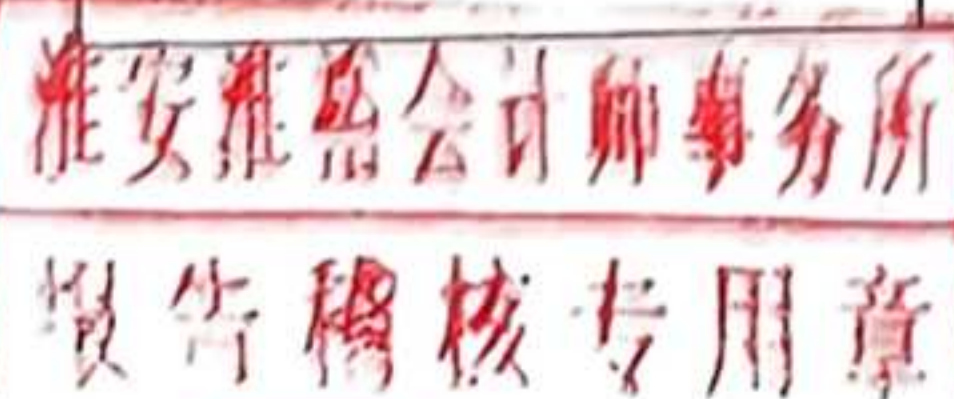 淮安淮信会计师事务所
报告稽核专用章